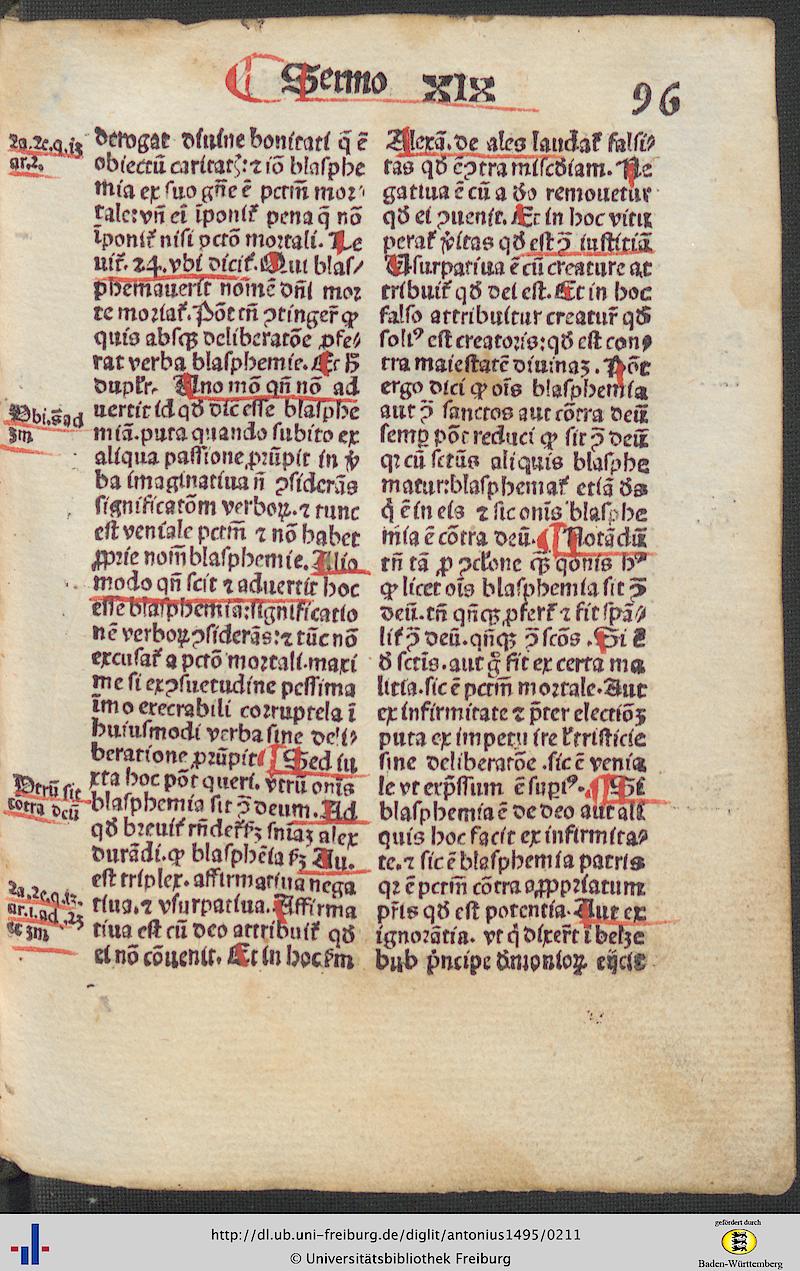 Sermo XIX
96
2a.2e.q.13
ar.2.
derogat diuine bonitati q̄ ē
obiectū caritatꝭ: ⁊ iō blasphe
mia ex suo gn̄e ē pctm̄ mor⸗
tale: vn̄ ei ĩponit᷑ pena q̄ nō
ĩponit᷑ nisi pctō mortali. Le
uit᷑. 24. vbi dicit᷑. Qui blas⸗
phemauerit nomē dn̄i mor
te moriat᷑. Pōt tn̄ ↄtinger̄ ꝙ
quis absqꝫ deliberatōe ꝓfe⸗
rat verba blasphemie. Et h̄
duplr̄. Uno mō qn̄ nō ad
Vbi.s̄.ad
3m
uertit id qđ dic̄ esse blasphe
miā. puta quando subito ex
aliqua passione ꝓrūpit in v̄
ba imaginatiua n̄ ↄsiderās
significatōm verboꝝ. ⁊ tunc
est veniale pctm̄ ⁊ nō habet
ꝓprie nom̄ blasphemie. Alio
modo qn̄ scit ⁊ aduertit hoc
esse blasphemia: significatio
nē verboꝝ ↄsiderās: ⁊ tūc nō
excusat᷑ a pctō mortali. maxi
me si ex ↄsuetudine pessima
ĩmo execrabili corruptela ĩ
huiusmodi verba sine deli⸗
beratione ꝓrūpit. ¶ Sed iu
Vtrū sit
cōtra deū
xta hoc pōt queri. vtrū onīs
blasphemia sit ↄ̄ deum. Ad
qđ breuit᷑ rn̄det᷑ ẜꝫ sniāꝫ alex
durādi. ꝙ blasphēia ẜꝫ Au.
2a.2e.q.13.
ar.1.ad .23
et 3m
est triplex. affirmatiua nega
tiua. ⁊ vsurpatiua. Affirma
tiua est cū deo attribuit᷑ qđ
ei nō cōuenit. Et in hoc ẜm
Alexā. de ales laudat᷑ falsi⸗
tas qđ ē ↄtra misc̄diam. Ne
gatiua ē cū a đo remouetur
qđ ei ↄuenit. Et in hoc vitu
perat᷑ v̄itas qđ est ↄ̄ iustitiā
Usurpatiua ē cū creature at
tribuit᷑ qđ dei est. Et in hoc
falso attribuitur creatur̄ qđ
soliꝰ est creatoris: qđ est con⸗
tra maiestatē diuinaꝫ. Pōt
ergo dici ꝙ oīs blasphemia
aut ↄ̄ sanctos aut cōtra deū
semꝑ pōt reduci ꝙ sit ↄ̄ deū
qꝛ cū sctūs aliquis blasphe
matur: blasphemat᷑ etiā đs
q̇ ē in eis ⁊ sic onīs blasphe
mia ē cōtra deū. ¶ Notādū
tn̄ tā ꝓ ↄclōne q̄ꝫ q̄onis hꝰ
ꝙ licet oīs blasphemia sit ↄ̄
deū. tn̄ qn̄qꝫ ꝓfert᷑ ⁊ fit spā⸗
lit᷑ ↄ̄ deū. qn̄qꝫ ↄ̄ scōs. Si ē
đ sctīs. aut g̊ fit ex certa ma
litia. sic ē pctm̄ mortale. Aut
ex infirmitate ⁊ p̄ter electiōꝫ
puta ex impetu ire l᷑ tristicie
sine deliberatōe. sic ē venia
le vt exp̄ssum ē supiꝰ. ¶ Si
blasphemia ē de deo aut ali
quis hoc facit ex infirmita⸗
te. ⁊ sic ē blasphemia patris
qꝛ ē pctm̄ cōtra aꝓpriatum
pr̄is qđ est potentia. Aut ex
ignorātia. vt q̇ dixer̄t ĩ belꝫe
bub p̄ncipe đmonioꝝ eijcit
http://dl.ub.uni-freiburg.de/diglit/antonius1495/0211
© Universitätsbibliothek Freiburg
gefördert durch
Baden-Württemberg